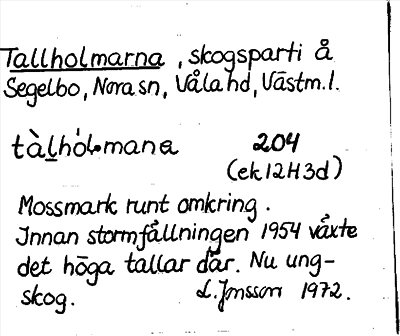 Tallholmarna , skogsparti å
Segelbo, Nora sn, Våla hd, Västm. l.
tàl̲hól̲mana 204
(ek 12H3d)
Mossmark runt omkring .
Innan stormfällningen 1954 växte
det höga tallar där. Nu ung-
skog. L. Jonsson 1972.